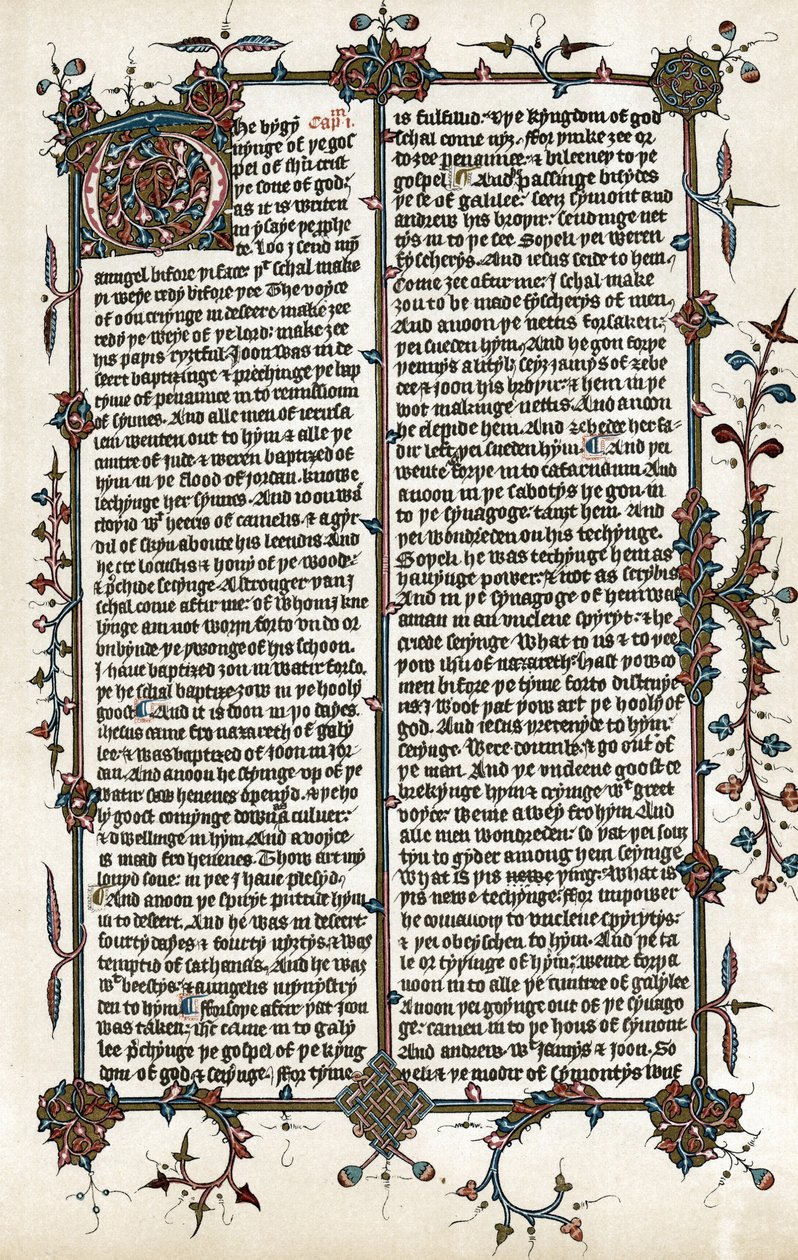 The bygẏ
nynge of þe gos
pel of ihū crist
þe sone of god:
as it is writen
in ysaye þe ꝓphe
te. Loo I send mẏ
Capm 1.
aungel bifore þi face: þt schal make
þi weye redy bifore þee The voyce
of oon criynge in deseere make zee
redy þe weye of þe lord: make zee
his paþis ryztful. Joon was in de
seert baptizinge & prechinge þe bap
tyme of penaunce in to remissioun
of synnes. And alle men of ierusa
lem wenten out to hym & alle þe
cuntre of Jude & weren baptized of
hym in þe flood of Jordan. knowe
lechynge her synnes. And ioon wā
cloþid wt heeris of camelis & a gyr
dil of skyn aboute his leendis. And
he eet locustis & hony of þe woode:
& pchide seiynge. A stronger þan I
schal come aftir me: of whom I kne
lynge am not worþi forto vn do or
vnbynde þe þwonge of his schoon.
I haue baptized zou in watir forso
þe he schal baptize zow in þe hooly
goost And it is doon in þo dayes.
ihesus came fro nazareth of galy
lee & was baptized of Joon in Jor
dan. And anoon he stiynge vp of þe
watir saw heuenes openyd. & þe ho
ly goost comynge down as a culuer:
& dwellinge in hym. And a voyce
is maad fro heuenes. Thow art my
louyd sone: in þee I haue plesyd.
And anoon þe spiryt puttide hym
in to deseert. And he was in desert
fourty dayes & fourty nyztys. & was
temptid of sathanas. And he was
wt beestys: & aungelis mynystry
den to hym forsoþe aftir þat Joon
was taken: ihc came in to galy
lee pchynge þe gospel of þe kyng
dom of god & seiynge. ffor tyme
is fulfillid. & þe kyngdom of god
schal come nyz. ffor þinke zee or
do zee penaunce. & bileeuey to þe
gospel And he passinge bisydes
þe se of galilee: seez symont and
andrew his broþir: sendinge net
tys in to þe see Soþeli þei weren
fyscherys. And iesus seide to hem.
Come zee aftir me: I schal make
zou to be made fyscherys of men.
And anoon þe nettis forsaken:
þei sueden hym. And he gon forþe
þennys a lityl: seyz Jamys of zebe
dee & Joon his broþir: & hem in þe
boot makinge nettis. And anoon
he clepide hem. And zebedee her fa-
dir left: þei sueden hym And þei
wente forþe in to cafarnaum And
anoon in þe sabotys he gon in
to þe synagoge: tauzt hem. And
þei wondreden on his techynge.
Soþeli he was techynge hem as
hauynge power: & not as scrybis
And in þe synagoge of hem was
a man in an vnclene spyryt: & he
criede seiynge What to us & to þee
þow ihū of nazareth: hast þow co
men bifore þe tyme forto distruye
us: I woot þat þow art þe hooly of
god. And iesus þretenyde to hym:
seiynge. Were doumb: & go out of
þe man. And þe vnclene goost to
brekynge hym & criynge wt greet
voyce: wente a wey fro hym And
alle men wondreden: so þat þei sow
tyn to gyder among hem seiynge
What is þis newe þing: What is
þis newe techynge: ffor in power
he comaundiþ to vnclene spyrytys:
& þei obeyschen to hym. And þe ta
le or tyþinge of hym: wente forþ a
noon in to alle þe cuntree of galylee
Anoon þei goynge out of þe synago
ge: camen in to þe hous of symont
And andrew wt Jamys & Joon. So
þeli & þe modir of symontys wyf